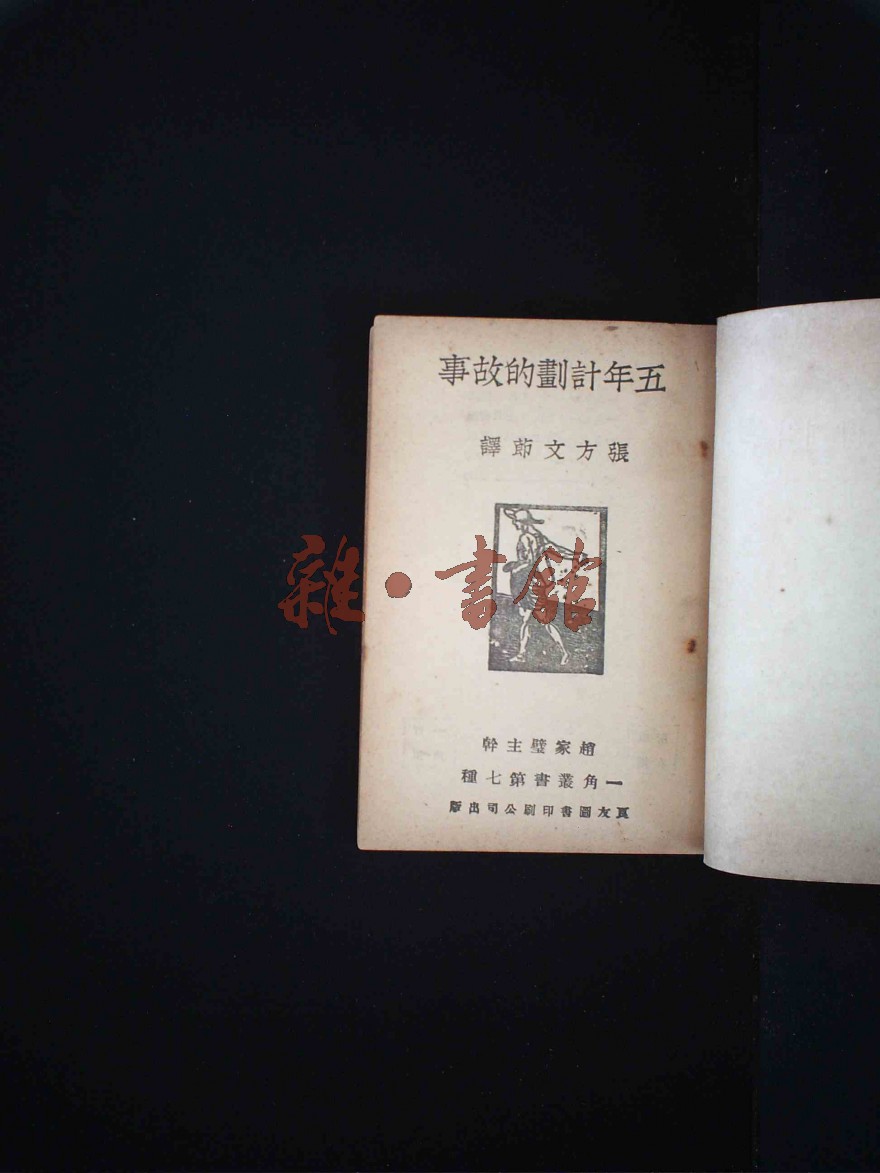 五年計劃的故事
張方文節譯
雜·書館
趙家璧主幹
一角叢書第七種
良友圖書印刷公司出版